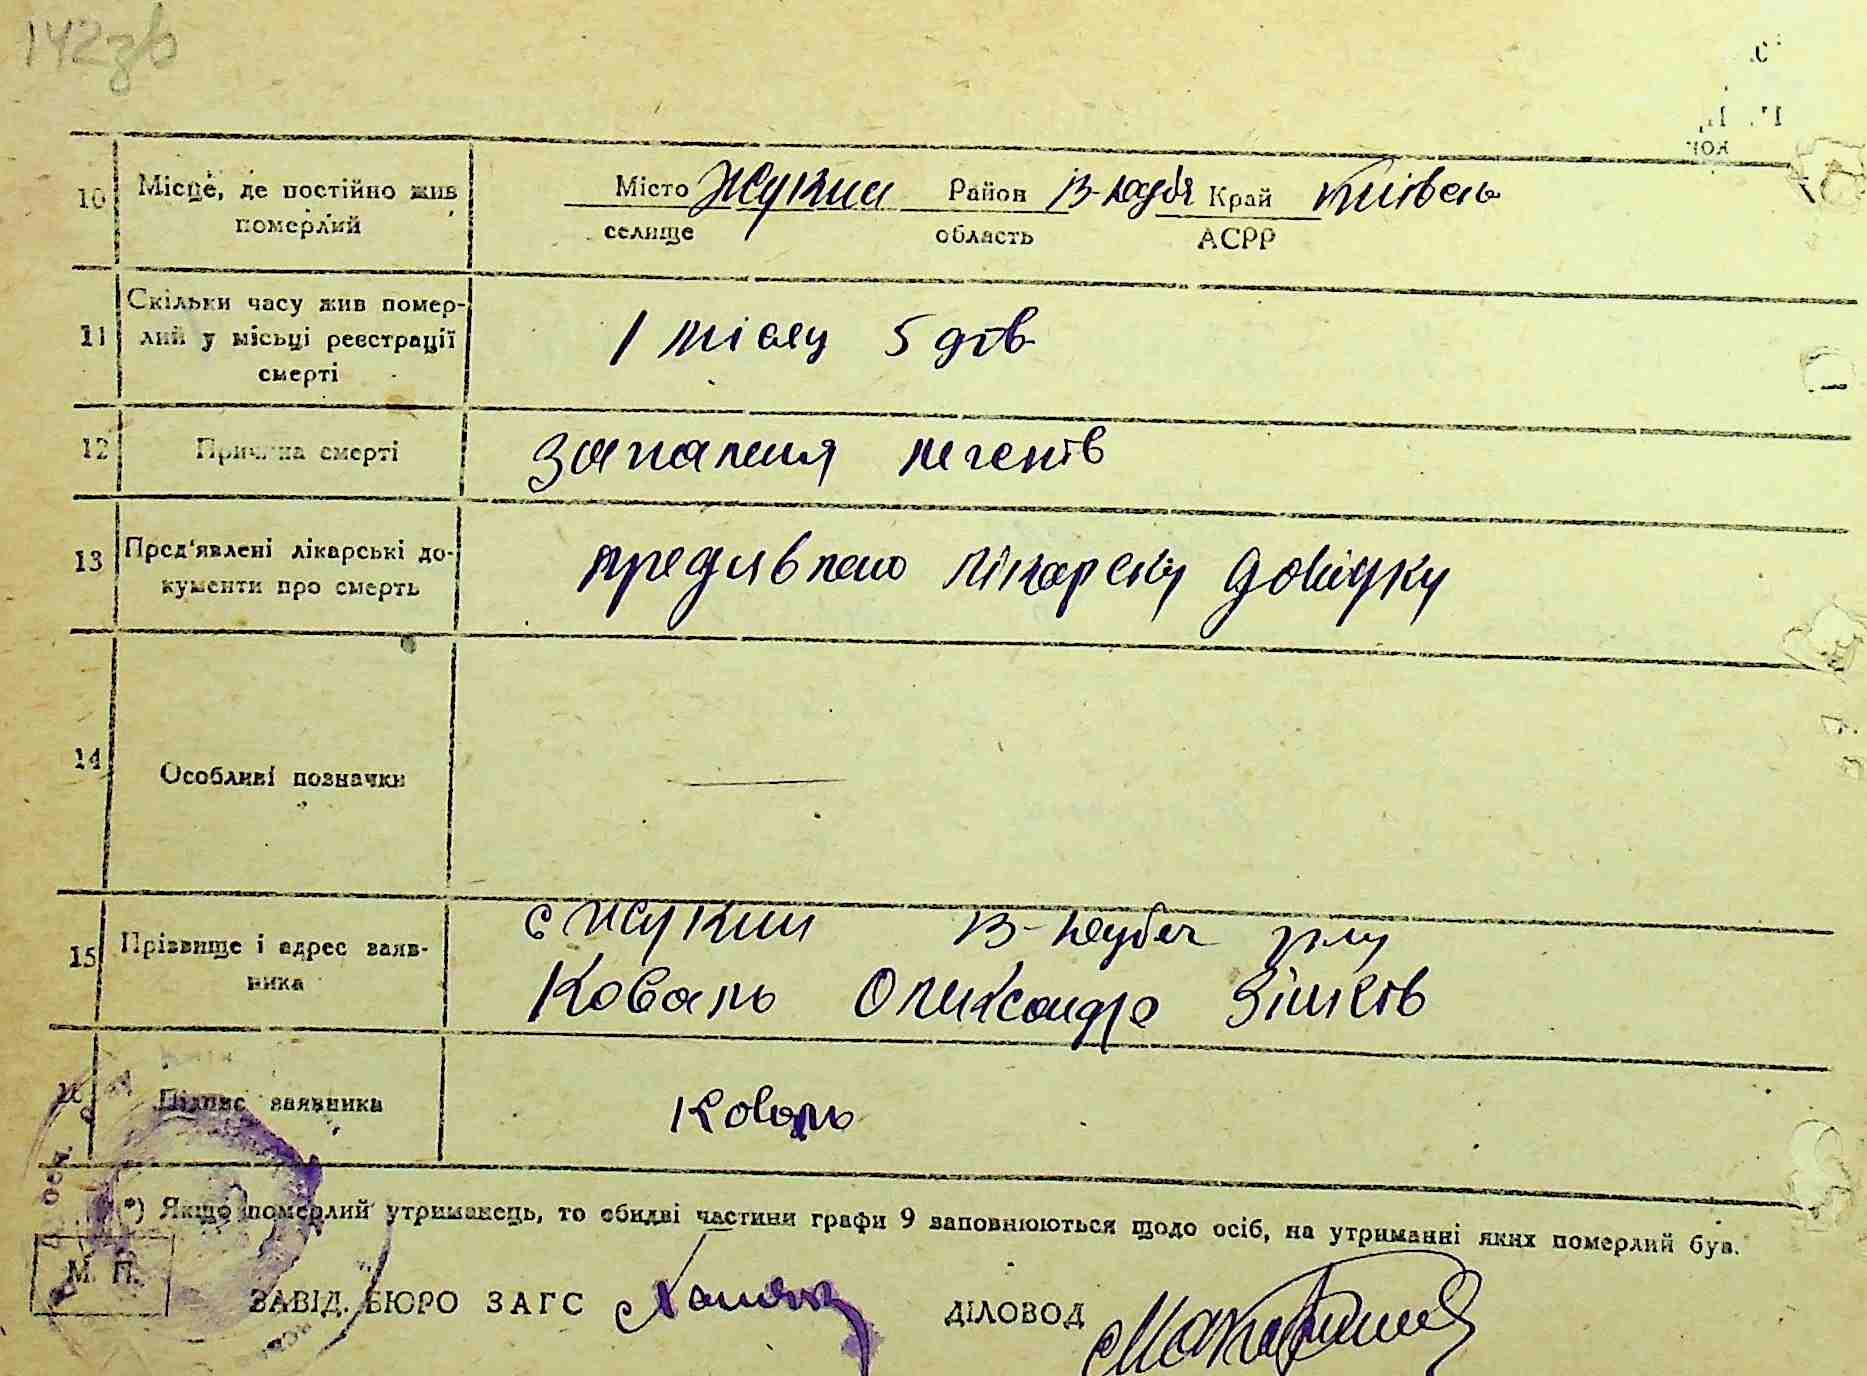 142зв
10 Місце, де постійно жив Місто Жукин Район В-Дубеч Край Київськ
померлий селище область АСРР
Скільки часу жив помер-
11 лий у місьці реєстрації 1 місяц 5 дів
смерті
12 Причина смерті Запаленя легенів
13 Пред'явлені лікарські до- предявлено лікарску довідку
кументи про смерть
14 Особливі позначки —
с Жукин В-Дубеч
15 Прізвище і адрес заяв- Коваль Олександр
ника
16 Підпис заявника Коваль
*) Якщо померлий утриманець, то обидві частини графи 9 заповнюються щодо осіб, на утриманні яких померлий був.
М. П.
ЗАВІД. БЮРО ЗАГС ДІЛОВОД